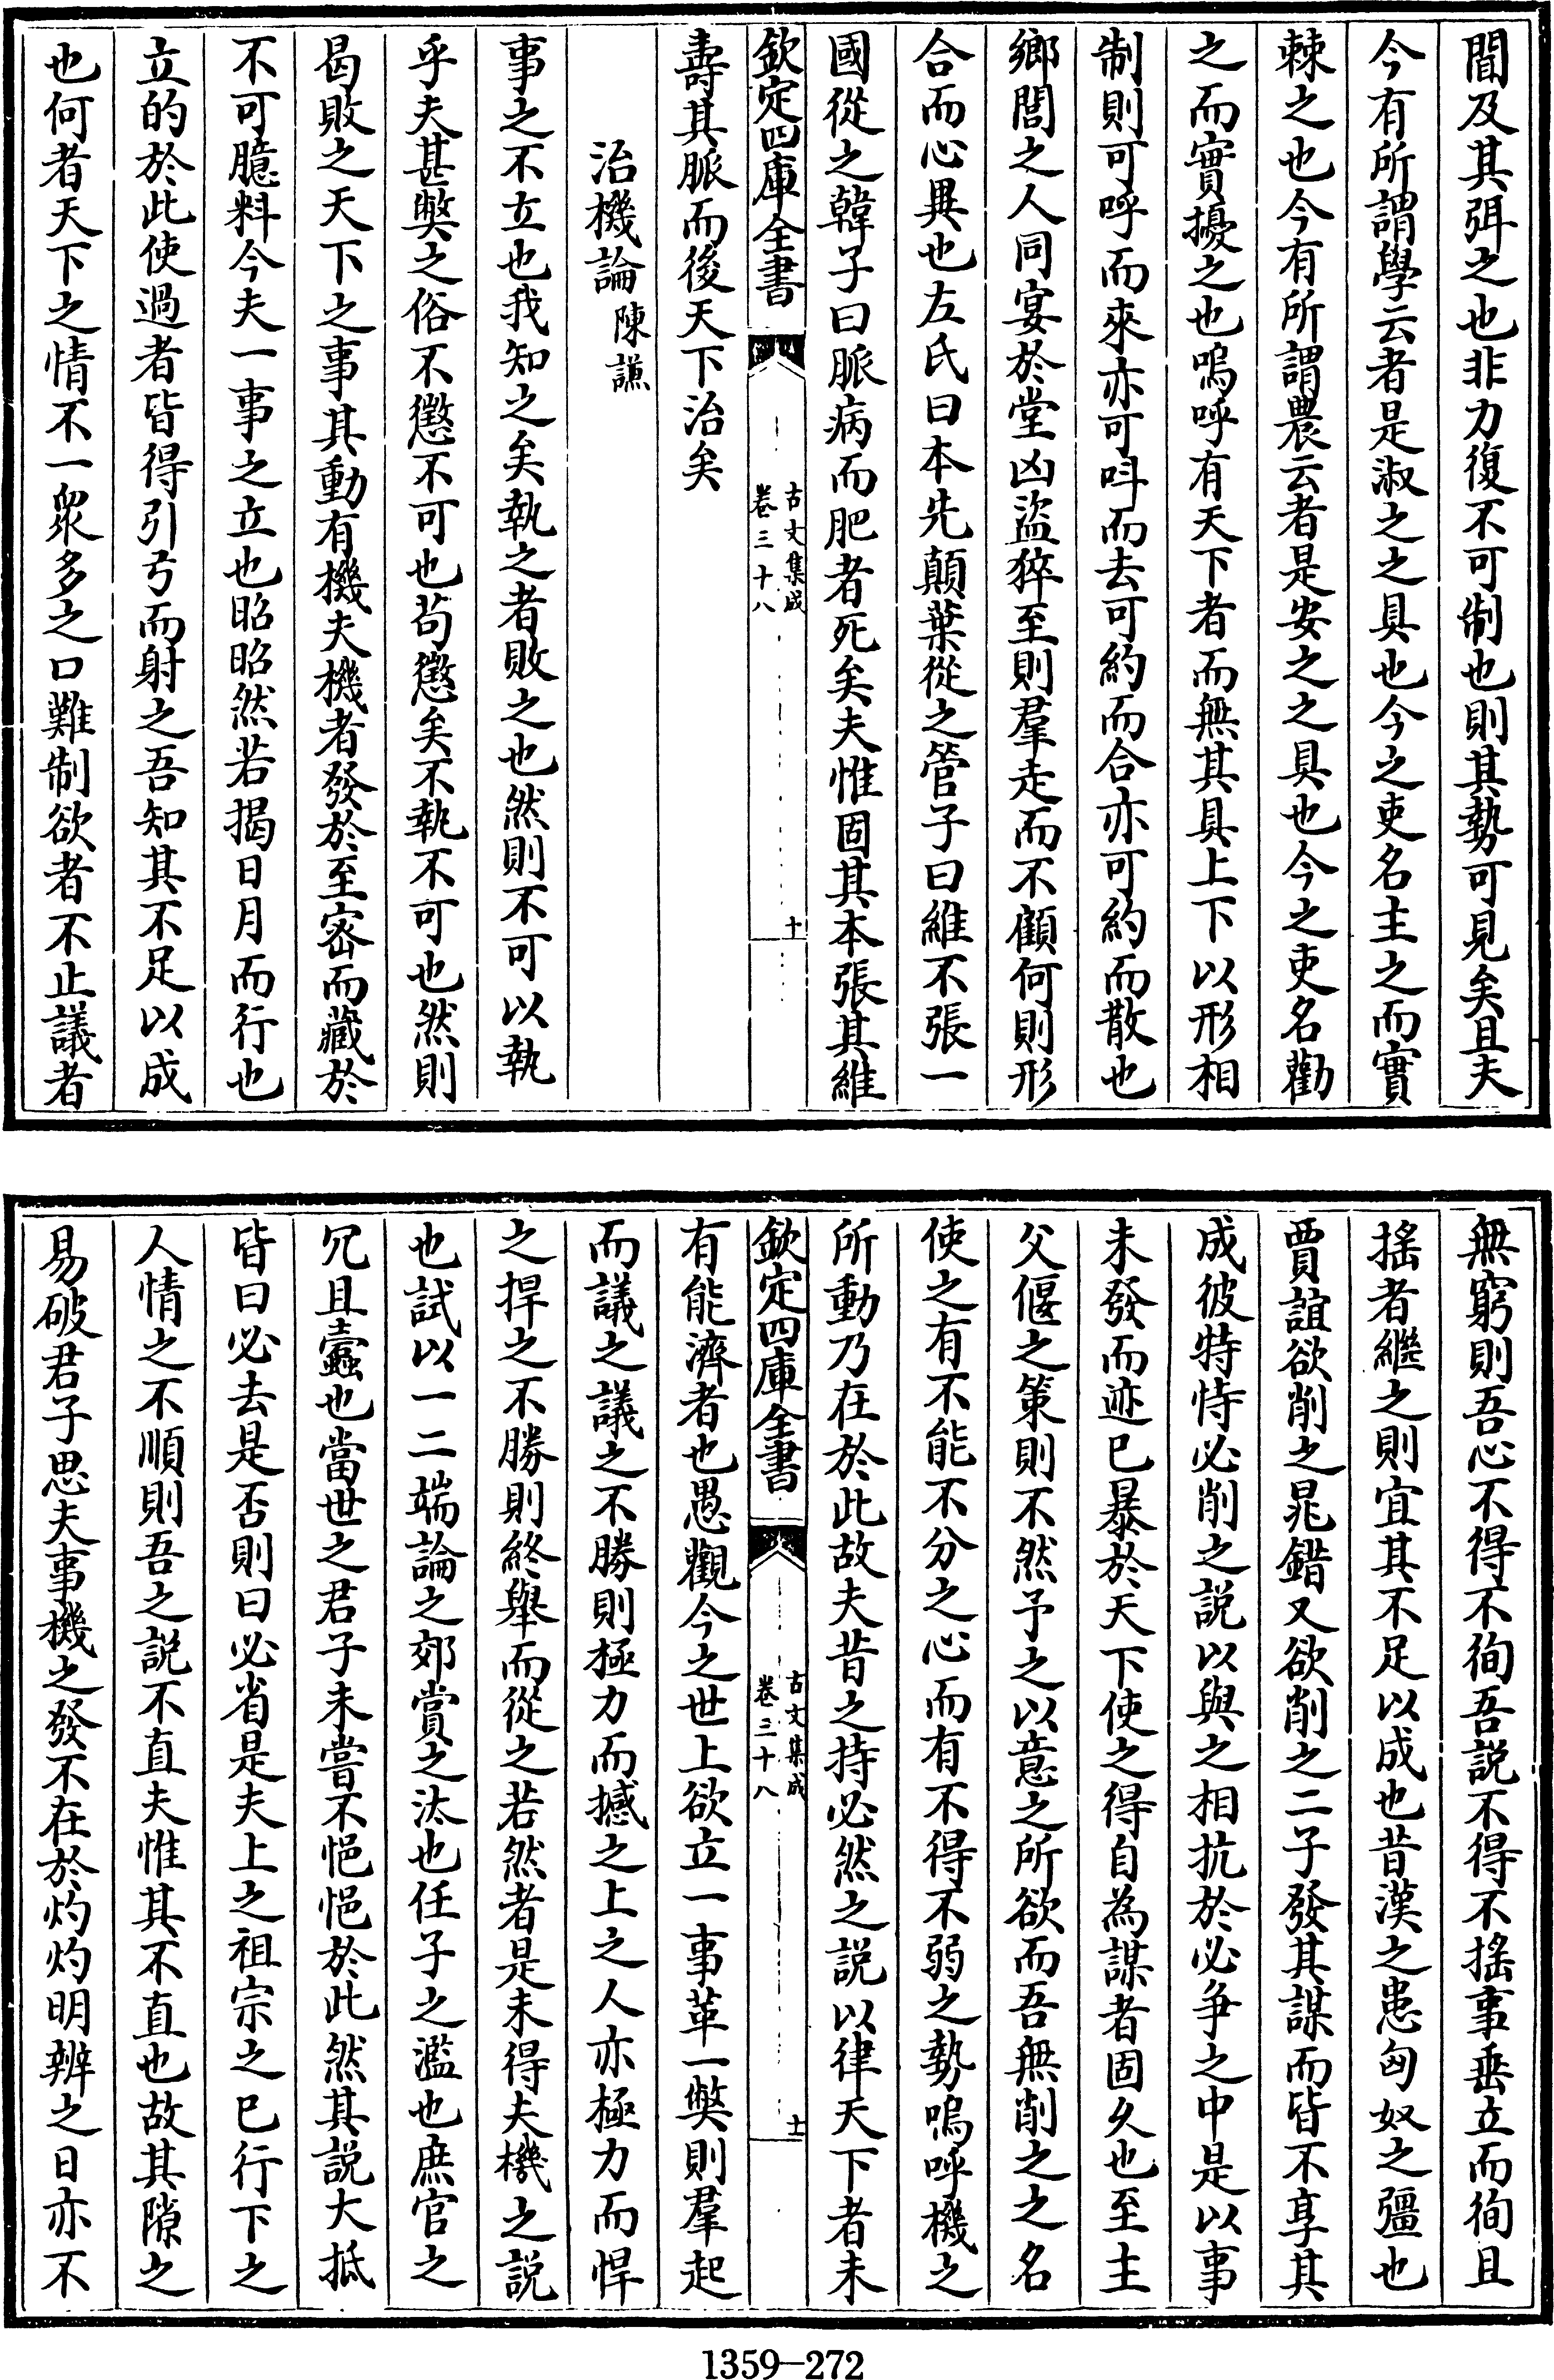 間及其弭之也非力復不可制也則其勢可見矣且夫
今有所謂學云者是淑之之具也今之吏名主之而實
棘之也今有所謂農云者是安之之具也今之吏名勸
之而實擾之也嗚呼有天下者而無其具上下以形相
制則可呼而來亦可呌而去可約而合亦可約而散也
鄉閭之人同宴於堂凶盜猝至則羣走而不顧何則形
合而心異也左氏曰本先顛葉從之管子曰維不張一
國從之韓子曰脈病而肥者死矣夫惟固其本張其維
欽定四庫全書
古文集成
卷三十八
十
壽其脈而後天下治矣
治機論 陳謙
事之不立也我知之矣執之者敗之也然則不可以執
乎夫甚獘之俗不懲不可也苟懲矣不執不可也然則
曷敗之天下之事其動有機夫機者發於至密而藏於
不可臆料今夫一事之立也昭昭然若揭日月而行也
立的於此使過者皆得引弓而射之吾知其不足以成
也何者天下之情不一衆多之口難制欲者不止議者
無窮則吾心不得不徇吾説不得不搖事垂立而徇且
搖者繼之則宜其不足以成也昔漢之患匈奴之彊也
賈誼欲削之鼂錯又欲削之二子發其謀而皆不享其
成彼特恃必削之説以與之相抗於必争之中是以事
未發而迹已暴於天下使之得自為謀者固久也至主
父偃之策則不然予之以意之所欲而吾無削之之名
使之有不能不分之心而有不得不弱之勢嗚呼機之
所動乃在於此故夫昔之持必然之説以律天下者未
欽定四庫全書
古文集成
卷三十八
十一
有能濟者也愚觀今之世上欲立一事革一獘則羣起
而議之議之不勝則極力而撼之上之人亦極力而悍
之捍之不勝則終舉而從之若然者是未得夫機之説
也試以一二端論之郊賞之汰也任子之濫也庶官之
冗且蠹也當世之君子未嘗不悒悒於此然其説大抵
皆曰必去是否則曰必省是夫上之祖宗之已行下之
人情之不順則吾之説不直夫惟其不直也故其隙之
易破君子思夫事機之發不在於灼灼明辨之日亦不
1359—272